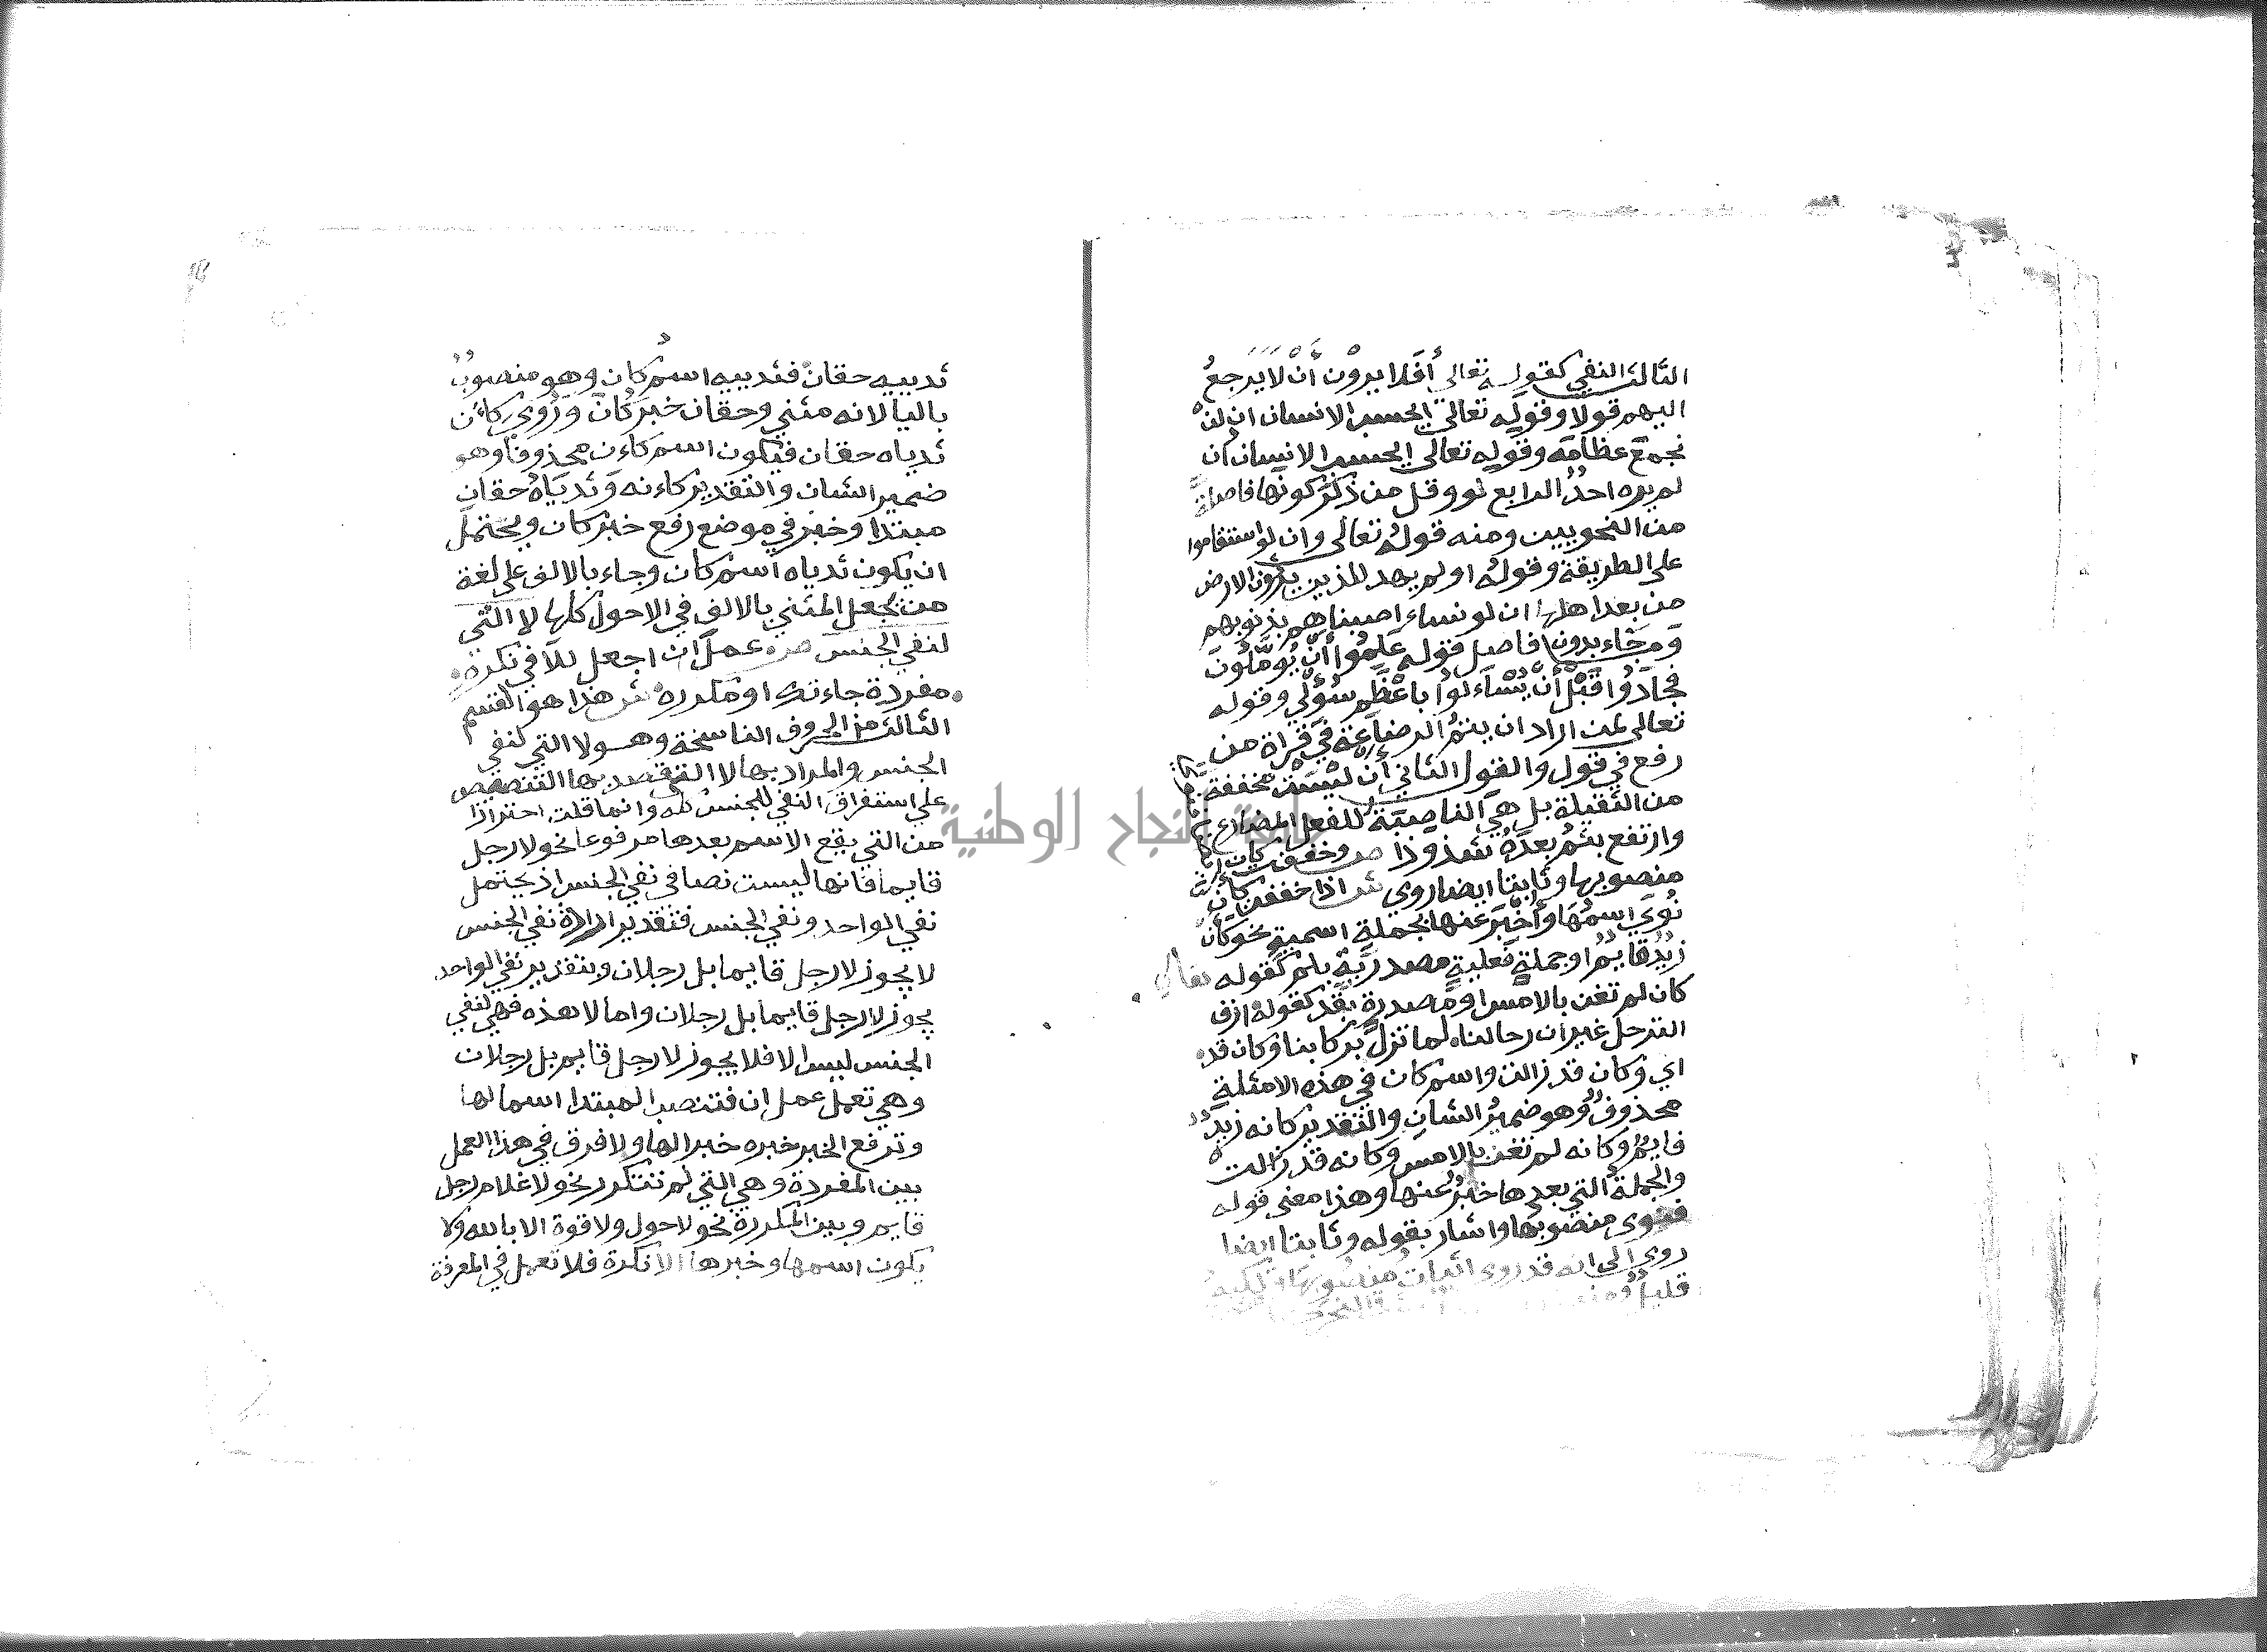 الثالث النفي كقوله تعالى أَفَلا يرَوْن أنْ لَا يَرجعُ
اليهم قولا وقوله تعالى ايحسب الانسان ان لنْ
نجمعَ عظامَه وقوله تعالى ايحسب الانسان ان
لم يره احدٌ الرابع لو وقل من ذكر كونها فاصلة
من النحويين ومنه قوله تعالى وان لو استقاموا
على الطريقة وقوله او لم يهد للذين يرثون الارض
من بعد اهلها ان لو نشاء اصبناهم بذنوبهم
ومجاء بدون فاصل قوله عَلِمُوا أنْ يُؤمَّلُونَ
فجادُوا قَبْلَ أنْ يُسْأَلوُا باعْظَمِ سُؤْلٍ وقوله
تعالى لمن اراد ان يتمُ الرضاعة في قراة من
رفع في قول والقول الثاني أنْ ليْسَتْ مخففة
من الثقيلة بل هي الناصبَةُ للفعل المضارع
وارتفع يتمُ بعدَهُ شذوذا ص وخففت كأن ايضا
منصوبها وثابتا ايضا روي ش اذا خففت كأنَّ
نُوِيَ اسمُهَا وأُخْبَرَ عنها بجملةٍ اسميةٍ نحو كأنْ
زيدٌ قايمٌ او جملةٍ فعليةٍ مصدرَّةٍ بلم كقوله تعالي
كان لم تغن بالامس او مصدرةٍ بقد كقوله ازف
الترحل غير ان رحالنا لما تزلْ بركابنا وكان قد
اي وكان قد زالت واسم كان في هذه الامثلةِ
محذوفٌ وهو ضميرُ الشانِ والتقدير كانه زيدٌ
قايمٌ وكانه لم تغن بالامس وكانه قد زالت
والجملة التي بعدها خبرٌ عنها وهذا معنى قوله
فنوى منصوبها واشار بقوله وثابتا ايضا
روي الى انه قد روى اثبات منصوبها ولكنه
قليلٌ ومنه
ثدييه حقان فثدييه اسم كان وهو منصوبٌ
باليا لانه مثني وحقان خبر كان ورُوى كأن
ثدياه حقان فيكون اسم كاءن محذوفا وهو
ضمير الشان والتقدير كاءنه وثدياه حقان
مبتدا وخبر في موضع رفع خبر كان ويحتمل
ان يكون ثدياه اسم كان وجاء بالالف على لغة
من يجعل المثني بالالف في الاحول كلها لا التي
لنفي الجنس ص عمل ان اجعل للا في نكرة
مفردة جاءتك او مكرره ش هذا هو القسم
الثالث من الحروف الناسخة وهو لا التي لنفي
الجنس والمراد بها لا التي قصد بها التنصيص
علي استغراق النفي للجنس كله وانما قلت احترازا
من التي يقع الاسم بعدها مرفوعا نحو لا رجل
قايما فانها ليست نصا في نفي الجنس اذ يحتمل
نفي الواحد ونفي الجنس فتقدير ارادة نفي الجنس
لا يجوز لا رجل قايما بل رجلان وبتقدير نفي الواحد
يجوز لا رجل قايما بل رجلان واما لا هذه فهي لنفي
الجنس ليس الا فلا يجوز لا رجل قايم بل رجلان
وهي تعمل عمل ان فتنصب المبتدا اسما لها
وترفع الخبر خبره خبرا لها ولا فرق في هذا العمل
بين المفردة وهي التي لم تتكرر نحو لا غلام رجل
قايم وبين المكررة نحو لا حول ولا قوة الا بالله ولا
يكون اسمها وخبرها الا نكرة فلا تعمل في المعرفة
جامعة النجاح الوطنية